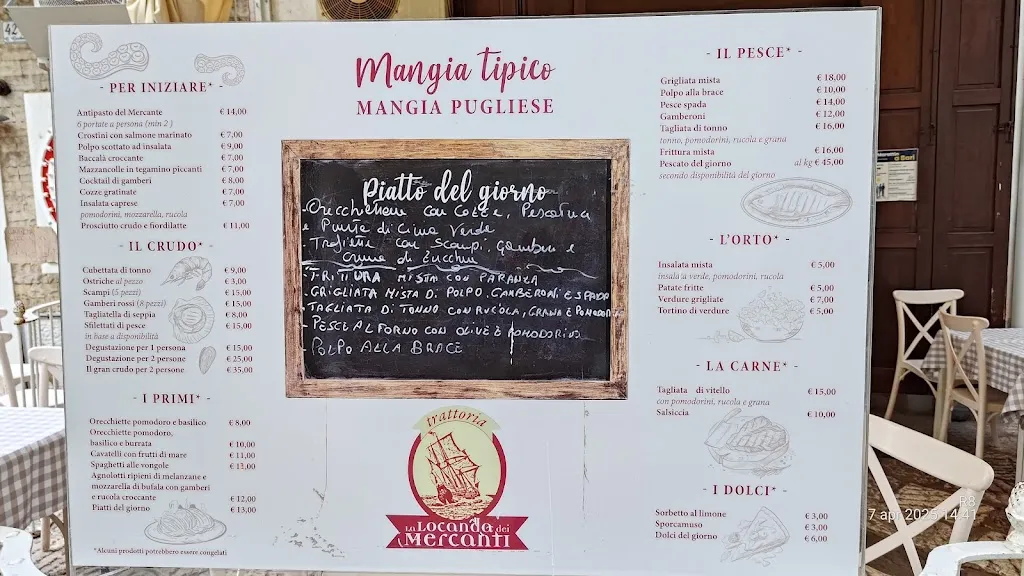 42
- PER INIZIARE* -
Antipasto del Mercante € 14,00
6 portate a persona (min 2 )
Crostini con salmone marinato € 7,00
Polpo scottato ad insalata € 9,00
Baccalà croccante € 7,00
Mazzancolle in tegamino piccanti € 7,00
Cocktail di gamberi € 8,00
Cozze gratinate € 7,00
Insalata caprese € 7,00
pomodorini, mozzarella, rucola
Prosciutto crudo e fiordilatte € 11,00
- IL CRUDO* -
Cubettata di tonno € 9,00
Ostriche al pezzo € 3,00
Scampi (5 pezzi) € 15,00
Gamberi rossi (8 pezzi) € 15,00
Tagliatella di seppia € 8,00
Sfilettati di pesce € 15,00
in base a disponibilità
Degustazione per 1 persona € 15,00
Degustazione per 2 persone € 25,00
Il gran crudo per 2 persone € 35,00
- I PRIMI* -
Orecchiette pomodoro e basilico € 8,00
Orecchiette pomodoro,
basilico e burrata € 10,00
Cavatelli con frutti di mare € 11,00
Spaghetti alle vongole € 13,00
Agnolotti ripieni di melanzane e
mozzarella di bufala con gamberi
e rucola croccante € 12,00
Piatti del giorno € 13,00
*Alcuni prodotti potrebbero essere congelati
Mangia tipico
MANGIA PUGLIESE
Piatto del giorno
- Orecchiette con Cozze,
e Punte di Cima Verde
- con Scampi, Gamberi e
Crema di Zucchine
- FRITTURA MISTA CON PARANZA
- GRIGLIATA MISTA DI POLPO, GAMBERONI E SPADA
- TAGLIATA DI TONNO CON RUCOLA, GRANA E POMODORI
- PESCE AL FORNO CON OLIVE E POMODORINI
- POLPO ALLA BRACE
trattoria
La LOCANDA dei
MERCANTI
- IL PESCE* -
Grigliata mista € 18,00
Polpo alla brace € 10,00
Pesce spada € 14,00
Gamberoni € 12,00
Tagliata di tonno € 16,00
tonno, pomodorini, rucola e grana
Frittura mista € 16,00
Pescato del giorno al kg € 45,00
secondo disponibilità del giorno
- L'ORTO* -
Insalata mista € 5,00
insalata verde, pomodorini, rucola
Patate fritte € 5,00
Verdure grigliate € 7,00
Tortino di verdure € 5,00
- LA CARNE* -
Tagliata di vitello € 15,00
con pomodorini, rucola e grana
Salsiccia € 10,00
- I DOLCI* -
Sorbetto al limone € 3,00
Sporcamuso € 3,00
Dolci del giorno € 6,00
a Bari
7 apr 2025 14:41